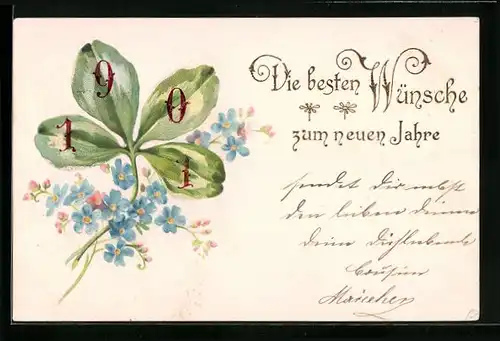 1901
Die besten Wünsche
zum neuen Jahre
sendet dir nebst
den lieben deinen
deine dich liebende
Cousine